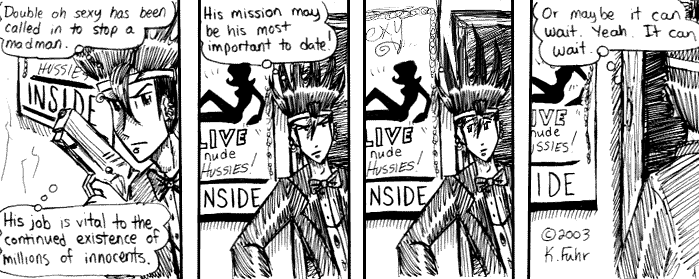 Double oh sexy has been
called in to stop a
madman.
HUSSIES
INSIDE
His job is vital to the
continued existence of
millions of innocents.
His mission may
be his most
important to date!
LIVE
nude
HUSSIES!
INSIDE
exy
LIVE
nude
HUSSIES!
INSIDE
Or maybe it can
wait. Yeah. It can
wait.
IVE
nude
USSIES!
IDE
©2003
K. Fuhr